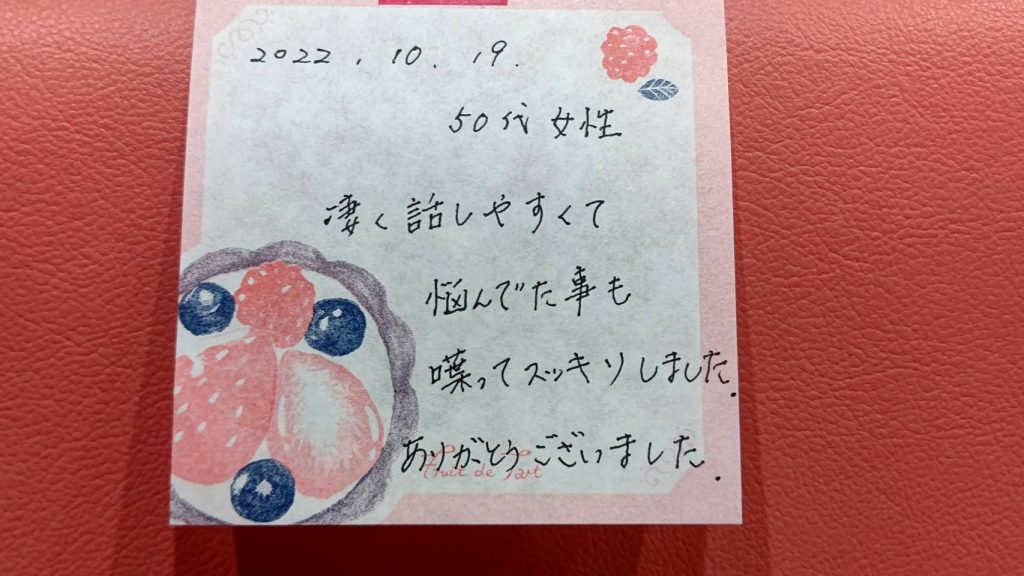 2022.10.19.
50代女性
凄く話しやすくて
悩んでた事も
喋ってスッキリしました.
ありがとうございました.